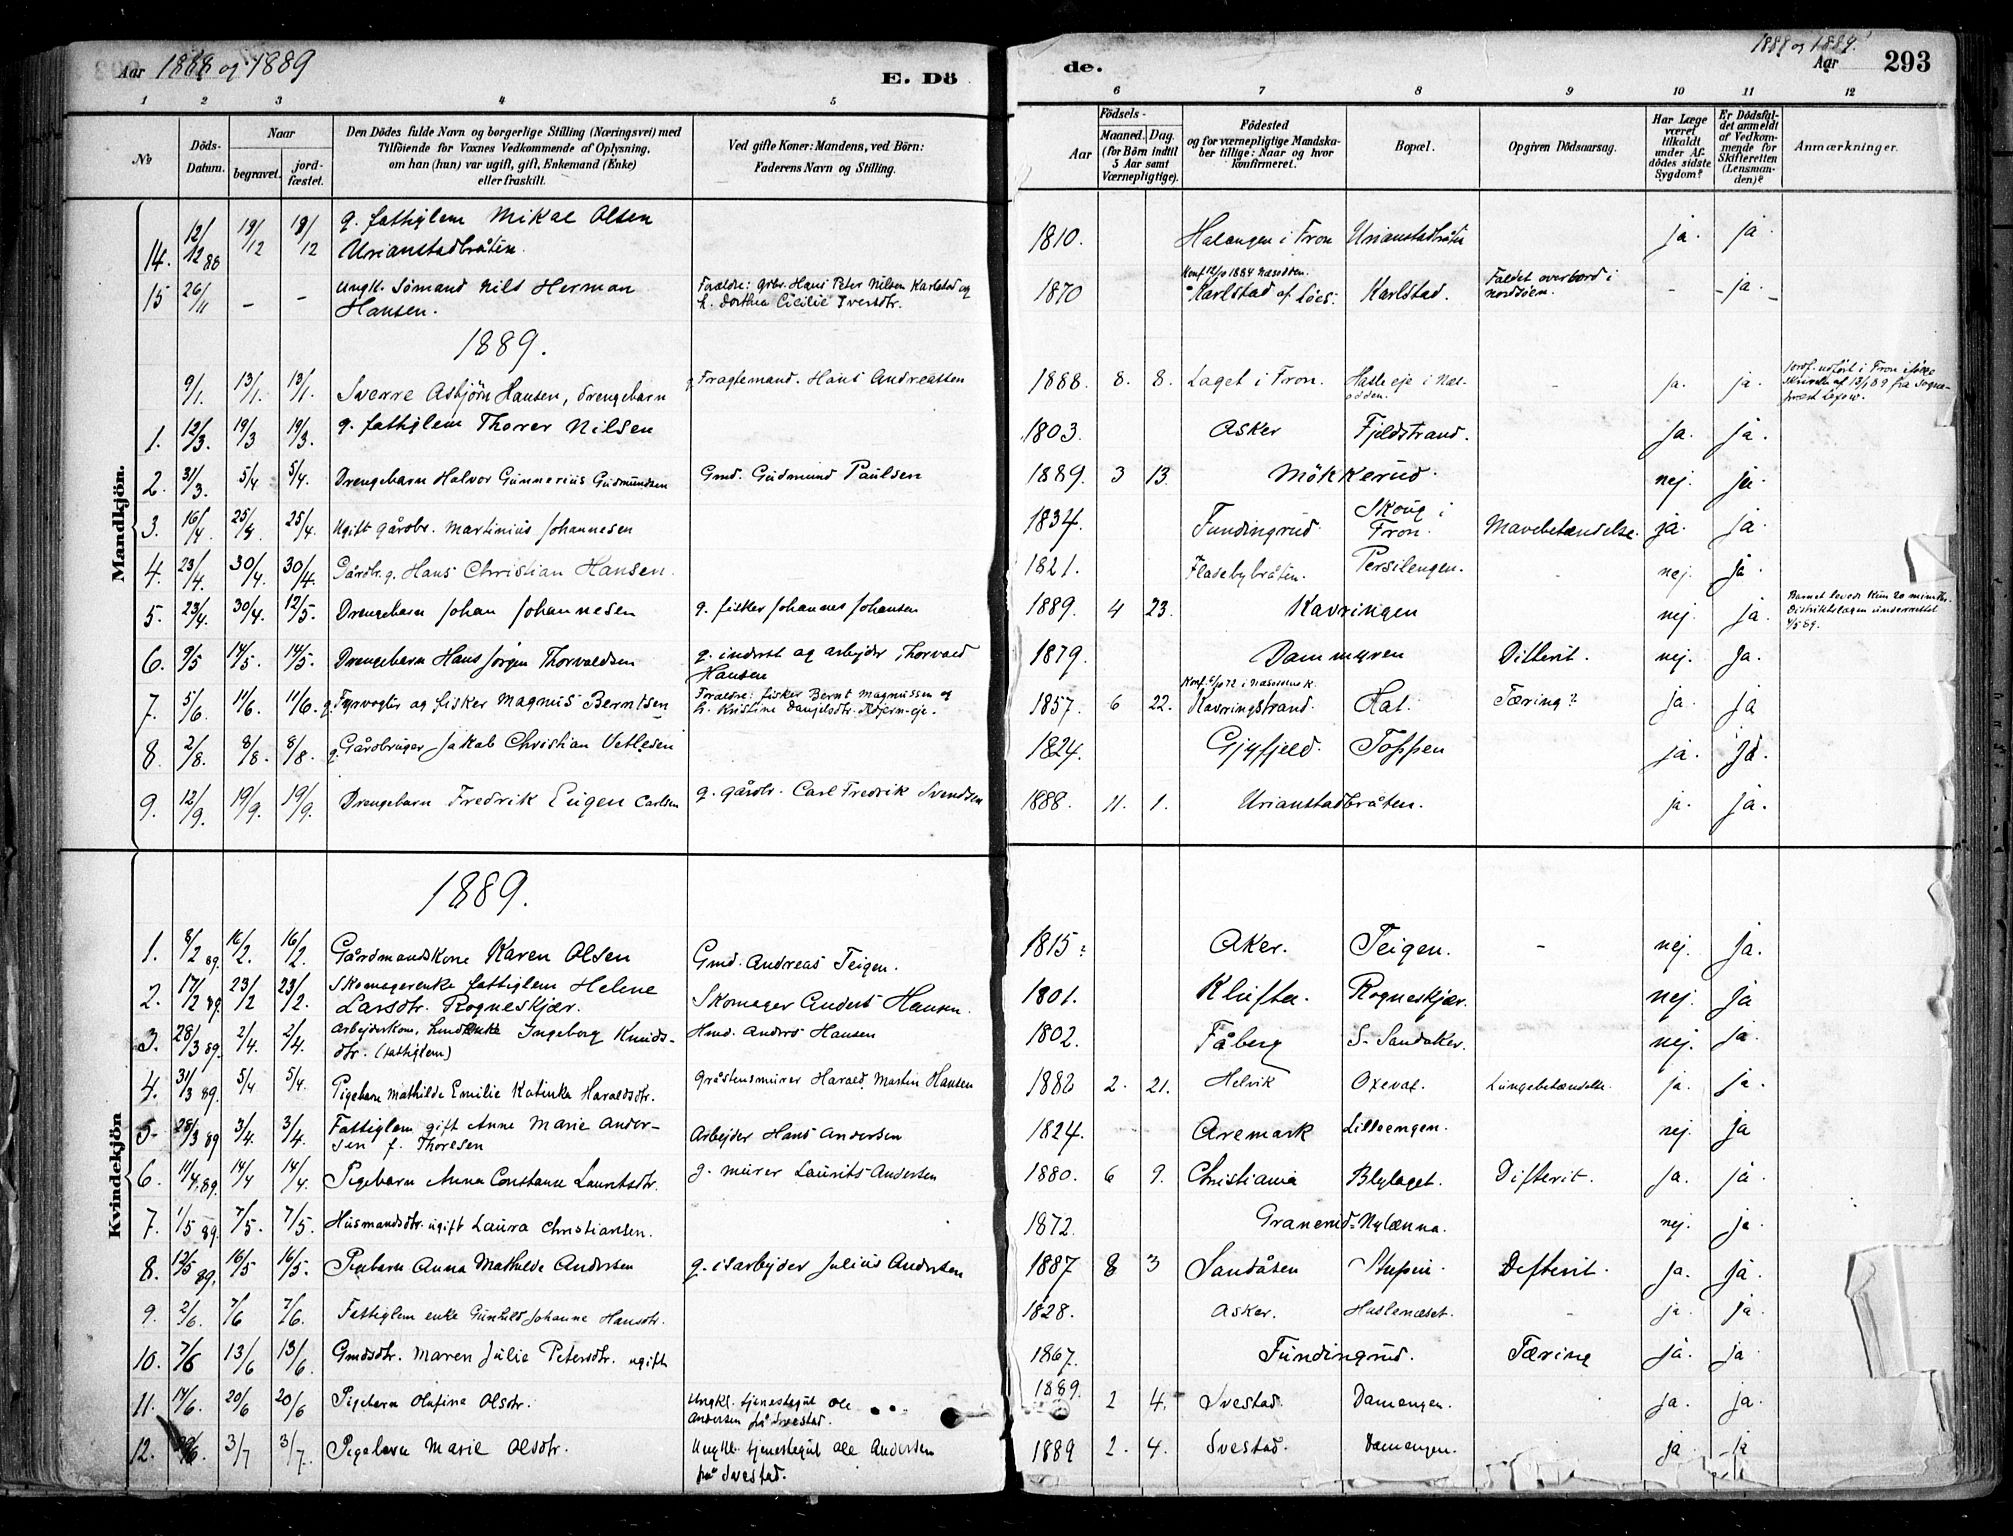 Aar 1888 og 1889
E. Dö
de.
1888 og 1889.
Aar
293
1 2 3 4 5 6 7 8 9 10 11 12
No
Döds-Datum.
Naar
begravet.
jord-fæstet.
Den Dödes fulde Navn og borgerlige Stilling (Næringsvei) med
Tilföiende for Voxnes Vedkommende af Oplysning,
om han (hun) var ugift, gift, Enkemand (Enke)
eller fraskilt.
Ved gifte Koner: Mandens, ved Börn:
Faderens Navn og Stilling.
Födsels-
Aar
Maaned. Dag.
(for Börn indtil
5 Aar samt
Værnepligtige).
Födested
og for værnepligtige Mandska-
ber tillige: Naar og hvor
konfirmeret.
Bopæl.
Opgiven Dödsaarsag.
Har Læge
været
tilkaldt
under Af-
dödes sidste
Sygdom?
Er Dödsfal-
det anmeldt
af Vedkom-
mende for
Skifteretten
(Lensman-
den)?
Anmærkninger.
Mandkjön.
14. 12/12 88 19/12 19/12 g. fattiglem Mikal Olsen 1810. Halangen i Fron Urianstadbråten ja. ja.
Urianstadbråten.
15 26/11 – – Ungk. Sömand Nils Herman Forældre: grbr. Hans Peter Nilsen Karlstad og 1870 Konf 1884 Næsodden. Karlstad. Faldet overbord i – ja.
Hansen. h. Dorthea Cicilie Iversdtr. Karlstad nordsöen.
1889.
9/1. 13/1. 13/1. Sverre Asbjörn Hansen, drengebarn g Fragtemand. Hans Andreassen 1888. 8. 8. Laget i Fron. Hasle eje i Næs-odden. – ja. ja.
1. 12/3. 19/3 19/3. g. fattiglem Thorer Nilsen 1803. Asker Fjeldstrand. ja. ja.
2. 31/3. 5/4 5/4. Drengebarn Halvor Gunnerius Gudmundsen Gmd. Gudmund Paulsen 1889. 3 13. Mökkerud. nej. ja.
3. 16/4. 25/4. 25/4. Ugift gårdbr. Martinius Johannesen 1834. Fundingrud Skoug i Fron. Mavebetændelse. ja ja.
4. 23/4. 30/4. 30/4. Gårdbr. g. Hans Christian Hansen. 1821. Flasebybråten. Persilengen. nej. ja.
5. 23/4. 30/4. 12/5. Drengebarn Johan Johannesen g. fisker Johannes Johansen 1889. 4 23. Kavringen nej ja. Barnet levede kun 20 minutter.
6. 9/5 14/5. 14/5. Drengebarn Hans Jörgen Thorvaldsen g. inderst og arbejder Thorvald 1879. Dammyren Difterit. nej. Ja.
Hansen
7. 5/6. 11/6. 11/6. g. Fyrvogter og fisker Magnus Berntsen Forældre: fisker Bernt Magnussen og 1857. 6 22. Kavringstrand. Hal. Tæring? ja. ja
8 2/8. 8/8. 8/8. g. Gårdbruger Jakob Christian Vetlesen 1824. Gjyfjeld. Toppen ja. ja.
9. 12/9. 19/9. 19/9. Drengebarn Fredrik Eugen Carlsen g. gårdbr. Carl Fredrik Svendsen 1888. 11. 1. Urianstadbråten. ja. ja.
Kvindekjön
1889.
1. 8/2 89. 16/2. 16/2. Gårdmandskone Karen Olsen Gmd. Andreas Teigen. 1815. Aker. Teigen. – nej. ja.
2. 17/2 89. 23/2 23/2. Skomagerenke fattiglem Helene Skomager Anders Hansen. 1801. Kløfta. Rogneskjær. nej. ja
Larsdtr. Rogneskjær.
3. 28/3 89. 2/4. 2/4. Ingeborg Knuds- Hmd. Anders Hansen 1802. Fåberg S. Sandaker. nej. ja.
dtr. (fattiglem)
4. 31/3 89. 5/4 5/4. Pigebarn Mathilde Emilie Katinka Haraldsdtr. Gråstensmurer Harald Martin Hansen 1886 2. 21. Helvik Oxeval. Lungebetændelse. ja. ja.
5. 28/3 89 3/4. 3/4. Fattiglem gift Anne Marie Ander- Arbejder Hans Andersen 1824. Aremark Lilleengen. nej. ja
sen f. Thoresen
6. 11/4 89. 14/4 14/4. Pigebarn Anna Constance Lauritsdtr. g. murer Laurits Andersen 1880. 6 9. Christiania Blylaget. Difterit. Ja. ja
7. 1/5 89. 7/5. 7/5. Husmandsdtr. ugift Laura Christiansen. 1872. Granerud Nylænna. nej. ja.
8. 12/5 89. 16/5 16/5. Pigebarn Anna Mathilde Andersen g. isarbejder Julius Andersen 1887 8 3 Sandåsen Stupin. Difterit. Ja. ja.
9. 2/6. 7/6 7/6. Fattiglem enke Gunhild Johanne Hansdtr. 1828. Asker. Haslenæset. – ja ja.
10. 7/6 13/6 13/6. Gmdsdtr. Maren Julie Petersdtr. ugift 1867. Fundingrud. Tæring ja. ja.
11. 14/6. 20/6 20/6 Pigebarn Olufine Olsdtr. Ungkl. tjenestegut Ole 1889. 2 4. Svestad Damengen. ja. ja.
Andersen på Svestad.
12. 3/7 3/7. Pigebarn Marie Olsdtr. Ungkl. tjenestegut Ole Andersen 1889 2. 4. Svestad. Damengen. ja ja
på Svestad.